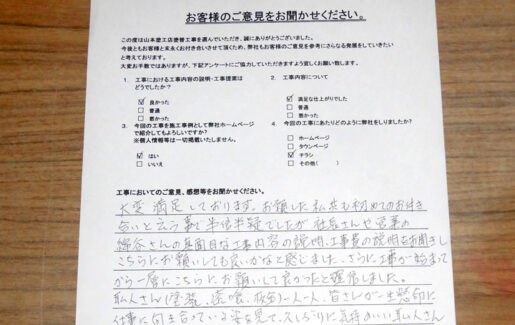 お客様のご意見をお聞かせください。
この度は山本塗工店塗替工事を選んでいただき、誠にありがとうございました。
今後ともお客様と末永くお付き合いさせて頂くため、弊社もお客様のご意見を参考にさらなる発展をしていきたい
と考えております。
大変お手数ではありますが、下記アンケートにご協力していただきますよう宜しくお願い致します。
1 工事における工事内容の説明・工事提案は
どうでしたか?
☑ 良かった
□ 普通
□ 悪かった
2. 工事内容について
☑ 満足な仕上がりでした
□ 普通
□ 悪かった
3. 今回の工事を施工事例として弊社ホームページ
で紹介してもよろしいですか?
※個人情報等は一切掲載いたしません。
☑ はい
□ いいえ
4. 今回の工事にあたりどのように弊社をしりましたか?
□ ホームページ
□ タウンページ
☑ チラシ
□ その他(　　)
工事においてのご意見、感想等をお聞かせください。
大変満足しております。お願いした私共も初めてのお付き
合いと云う事で半信半疑でしたが社長さんや営業の
さんの真面目な工事内容の説明、工事費の説明をお聞きし
こちらにお願いしても良いかなと感じました。さらに工事が始まって
から一層にこちらにお願いして良かったと確信しました。
職人さん(塗装、 板金)一人一人、皆さんが一生懸命に
仕事に向き合っている姿を見て、久しぶりに気持のいい職人さん